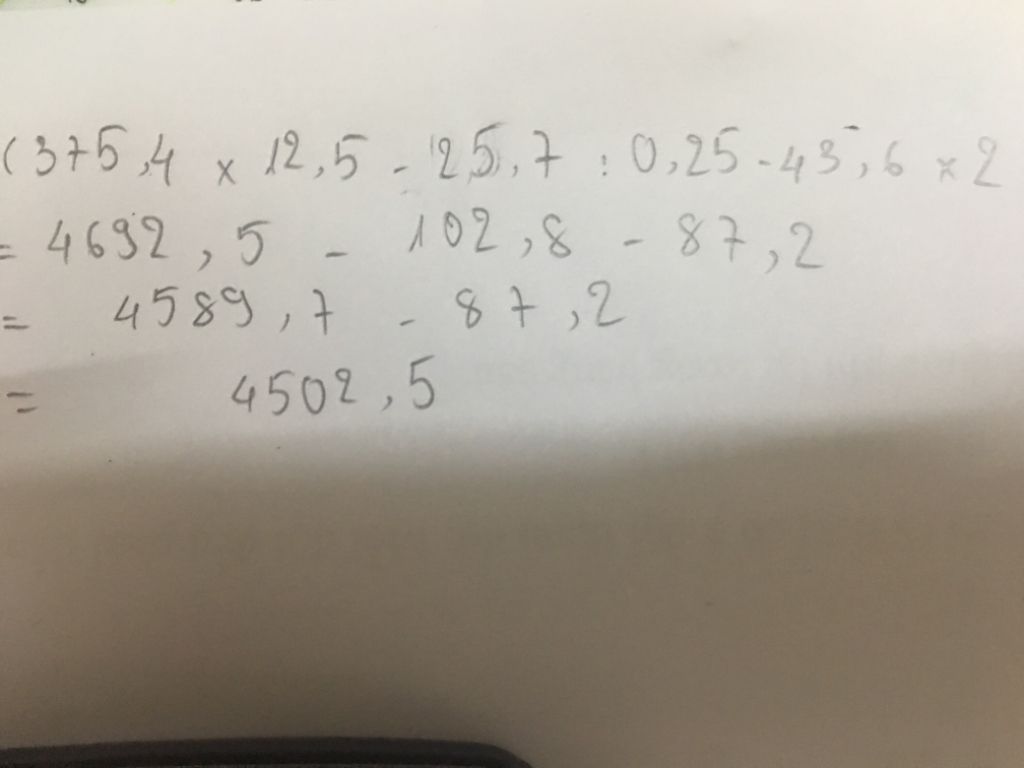 (375,4 x 12,5 - 25,7 : 0,25 - 43,6 x 2
= 4692,5 - 102,8 - 87,2
= 4589,7 - 87,2
= 4502,5